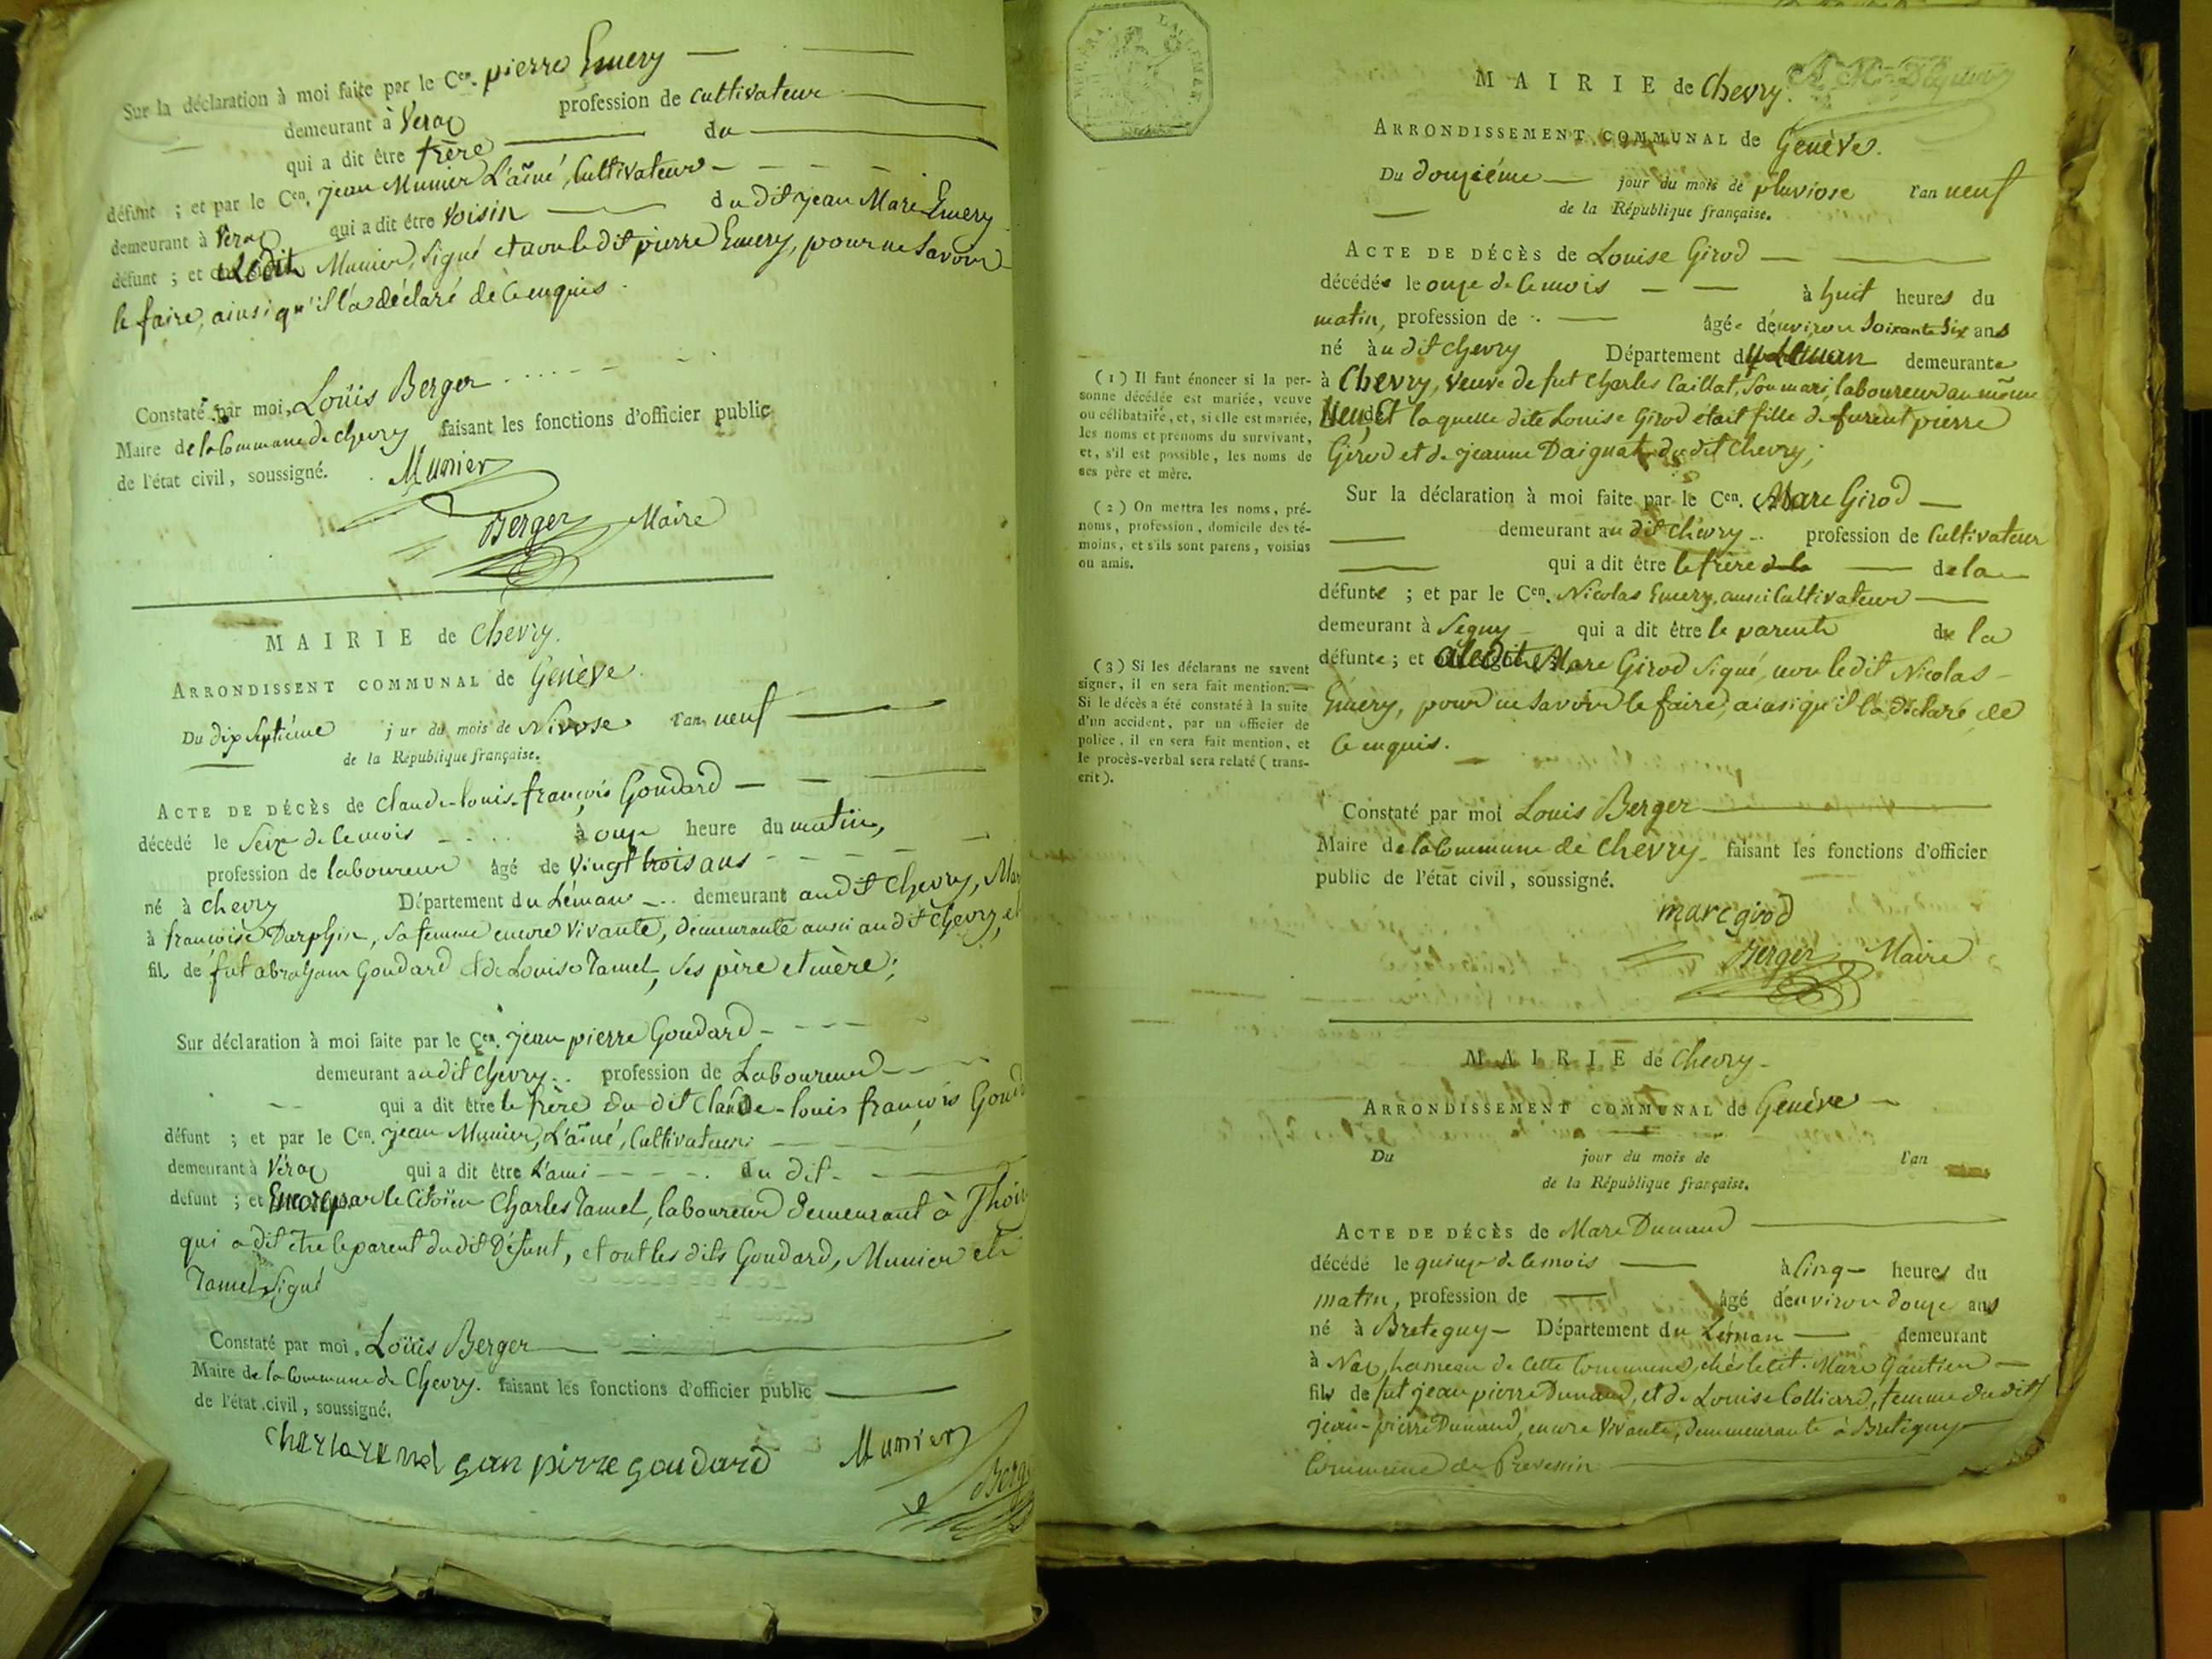 Sur la déclaration à moi faite par le Cen. pierre Emery
demeurant à Veraz profession de cultivateur
qui a dit être frère du
défunt ; et par le Cen. jean Munier L'aîné, Cultivateur
demeurant à Veraz qui a dit être Voisin du dit jean Marie Emery
défunt ; et a Ledit Munier, signé et non le dit pierre Emery, pour ne savoir
le faire, ainsi qu'il l'a déclaré de ce enquis.
Constaté par moi, Loüis Berger
Maire de la Commune de chevry faisant les fonctions d'officier public
de l'état civil, soussigné.
Munier
Berger Maire
MAIRIE de Chevry.
ARRONDISSENT COMMUNAL de Genève.
Du dix septième jur du mois de Nivose l'an neuf
de la République française.
ACTE DE DÉCÈS de Claude-louis-françois Goudard
décédé le Seize de ce mois à onze heure du matin,
profession de laboureur âgé de Vingt trois ans
né à chevry Département du Léman demeurant au dit Chevry,
à françoise Darphin, sa femme encore Vivante, demeurante aussi au dit Chevry, et
fil de fut abraham Goudard et de Louise Tamel, ses père et mère;
Sur déclaration à moi faite par le Cen. jean pierre Goudard
demeurant au dit Chevry profession de Laboureur
qui a dit être le frère du dit Claude-louis françois
défunt ; et par le Cen. jean Munier, L'aîné, Cultivateur
demeurant à Véraz qui a dit être L'ami du dit
défunt ; et Encore par le Citoïen Charles Tamel, laboureur demeurant à
qui a dit être le parent du dit Défunt, et ont les dits Goudard, Munier et
Tamel, signé
Constaté par moi, Loüis Berger
Maire de la Commune de Chevry. faisant les fonctions d'officier public
de l'état civil, soussigné.
gan pirre goudard Munier
Berg
MAIRIE de Chevry.
ARRONDISSEMENT COMMUNAL de Genève.
Du douzième jour du mois de pluviose l'an neuf
de la République française.
ACTE DE DÉCÈS de Louise Girod
décédée le onze de ce mois à huit heures du
matin, profession de âgée d'environ Soixante Six ans
né au dit chevry Département du Léman demeurante
(1) Il faut énoncer si la per-
sonne décédée est mariée, veuve
ou célibataire, et, si elle est mariée,
les noms et prénoms du survivant,
et, s'il est possible, les noms de
ses père et mère.
à Chevry, veuve de fut Charles Caillat, son mari, laboureur au même
lieu, et laquelle dite Louise Girod était fille de furent pierre
Girod et de jeanne Daignat du dit Chevry;
(2) On mettra les noms, pré-
noms, profession, domicile des té-
moins, et s'ils sont parens, voisins
ou amis.
Sur la déclaration à moi faite par le Cen. Marc Girod
demeurant au dit Chevry profession de Cultivateur
qui a dit être le frère de la
défunte ; et par le Cen. Nicolas Emery, aussi Cultivateur
demeurant à Segny qui a dit être le parent de la
(3) Si les déclarans ne savent
signer, il en sera fait mention.
Si le décès a été constaté à la suite
d'un accident, par un officier de
police, il en sera fait mention, et
le procès-verbal sera relaté (trans-
crit).
défunte ; et a ledit Marc Girod signé, non le dit Nicolas
Emery, pour ne savoir le faire, ainsi qu'il l'a déclaré de
ce enquis.
Constaté par moi Louis Berger
Maire de la Commune de Chevry faisant les fonctions d'officier
public de l'état civil, soussigné.
marc girod
Berger Maire
MAIRIE de Chevry
ARRONDISSEMENT COMMUNAL de Genève
Du jour du mois de l'an
de la République française.
ACTE DE DÉCÈS de Marc Dunand
décédé le quinze de ce mois à Cinq heures du
matin, profession de âgé d'environ douze ans
né à Bretegny Département du Léman demeurant
à Naz, hameau de cette Commune, chés le cit. Marc Gautier
fils de fut jean pierre Dunand, et de Louise Colliard, femme du dit
jean-pierre Dunand, encore Vivante, demmeurante à Bretigny
Commune de Prevessin